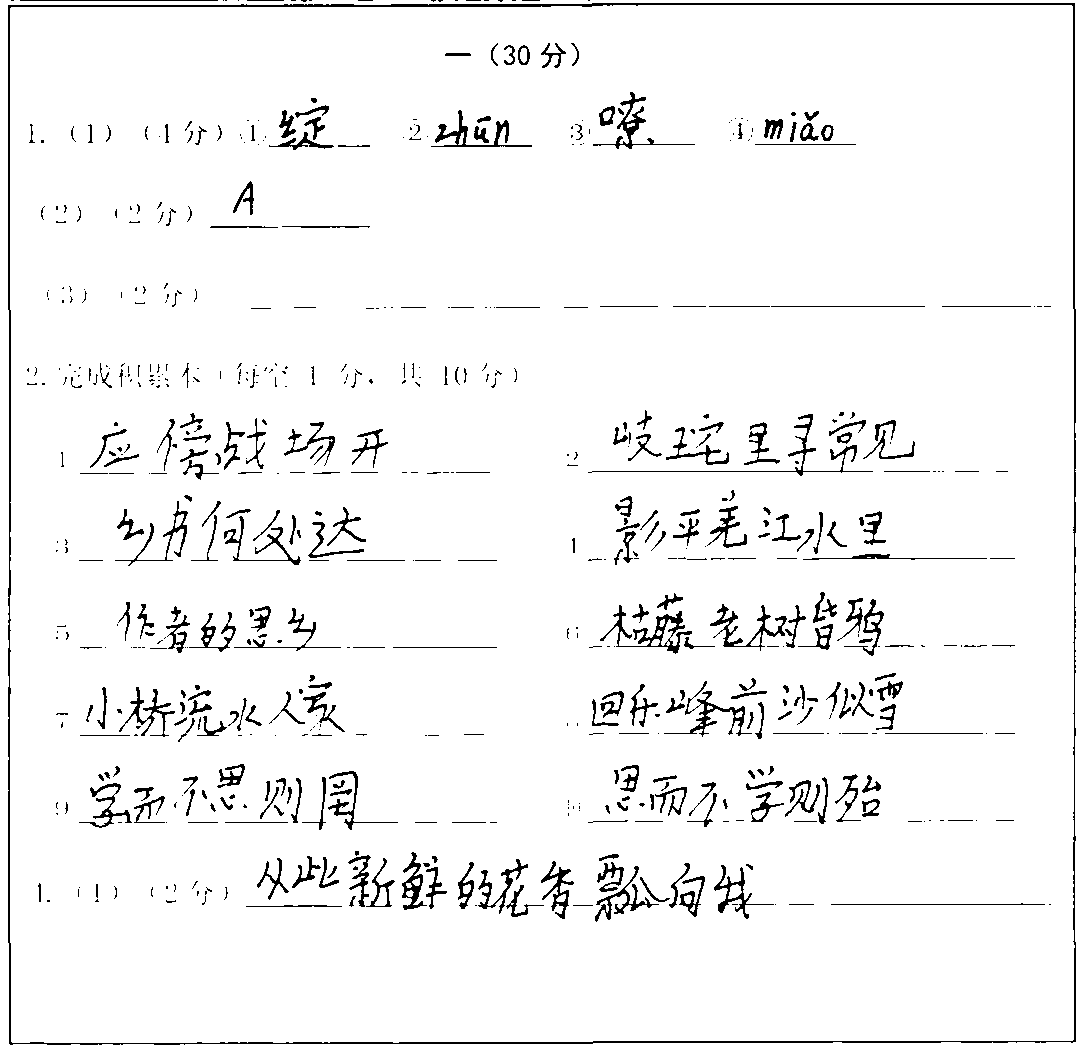 一（30 分）
1.（1）（4分）① 绽 ② zhūn ③ 嘹 ④ miǎo
（2）（2分） A
（3）（2分）
2. 完成积累本（每空 1 分，共 10 分）
1 应傍战场开 2 岐王宅里寻常见
3 乡书何处达 4 影平羌江水里
5 作者的思乡 6 枯藤老树皆鸦
7 小桥流水人家 8 回乐峰前沙似雪
9 学而不思则罔 10 思而不学则殆
4.（1）（2分） 从此新鲜的花香瓢向我